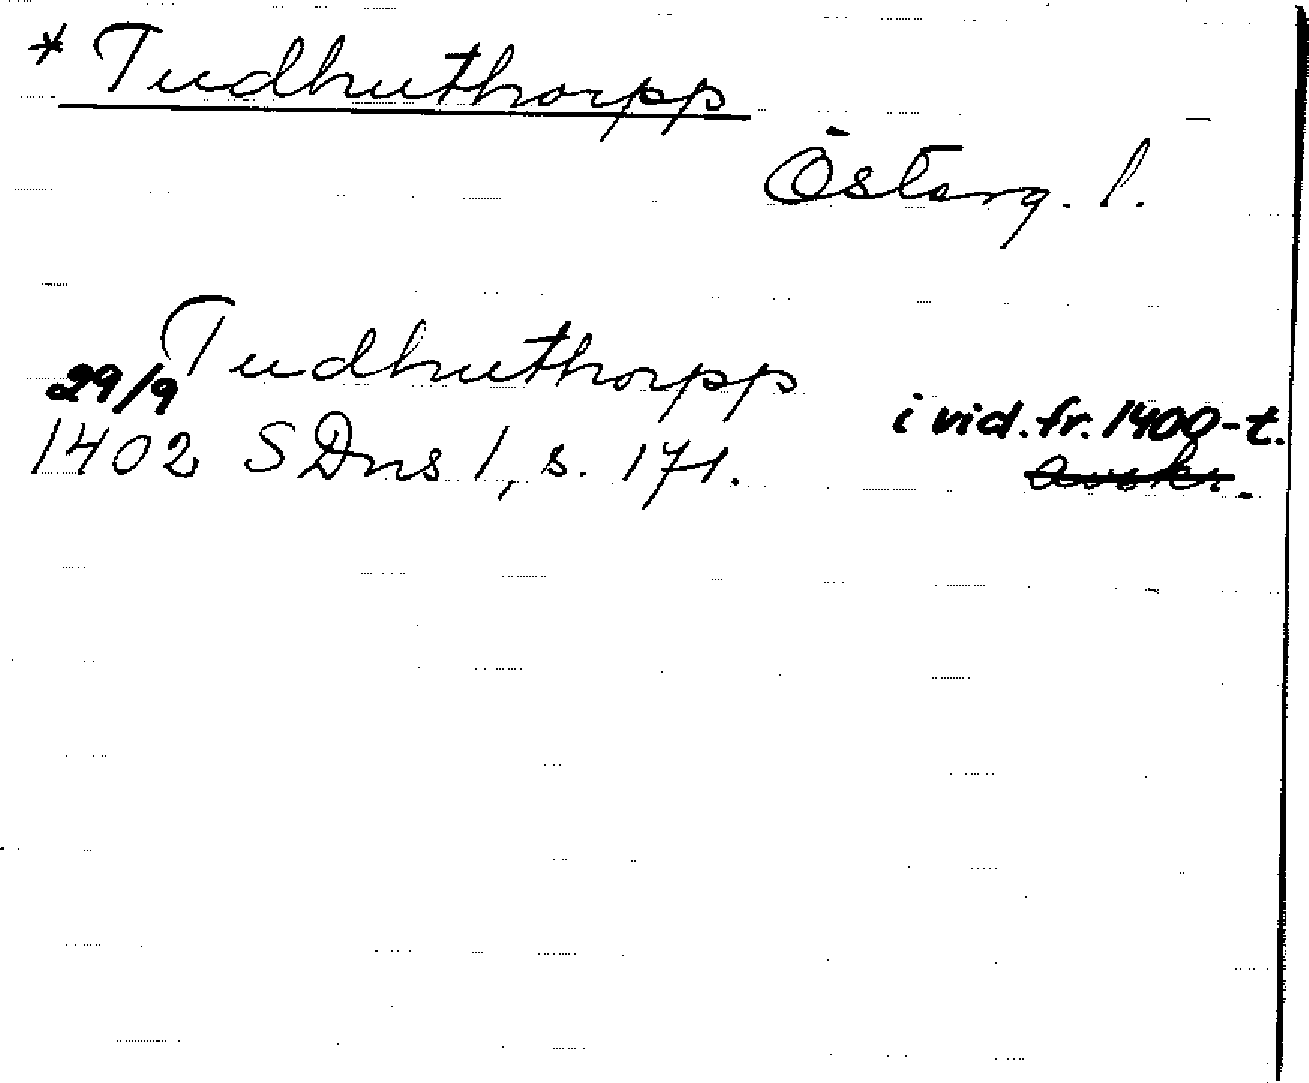 * Tudhuthorpp
Österg. l.
Tudhuthorpp
29/9
i vid. fr. 1400-t.
1402 SDns 1, s. 171.